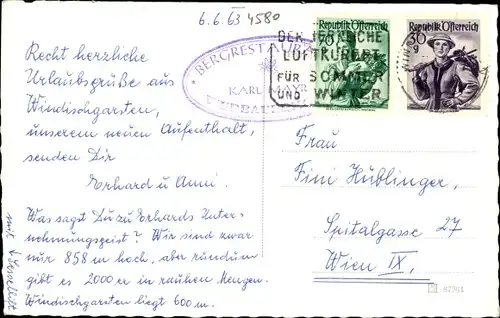 6.6.63 4580
BERGRESTAURANT
KARL MAYR
DER HERRLICHE
LUFTKURORT
FÜR SOMMER
UND WINTER
Republik Österreich
Republik Österreich
30 g
Recht herzliche
Urlaubsgrüße aus
Windischgarsten,
unserem neuen Aufenthalt,
senden Dir
Erhard u. Anni.
Was sagst Du zu Erhards Unter-
nehmungsgeist? Wir sind zwar
nur 858 m hoch, aber rundum
gibt es 2000er in rauhen Mengen.
Windischgarsten liegt 600 m.
mit Sessellift
Frau
Fini Hüblinger,
Spitalgasse 27
Wien IX,